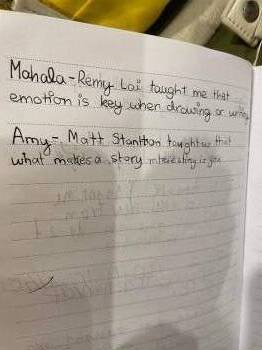 Mahala - Remy Lai taught me that
emotion is key when drawing or
Amy - Matt Stantton taught us that
what makes a story interesting is you